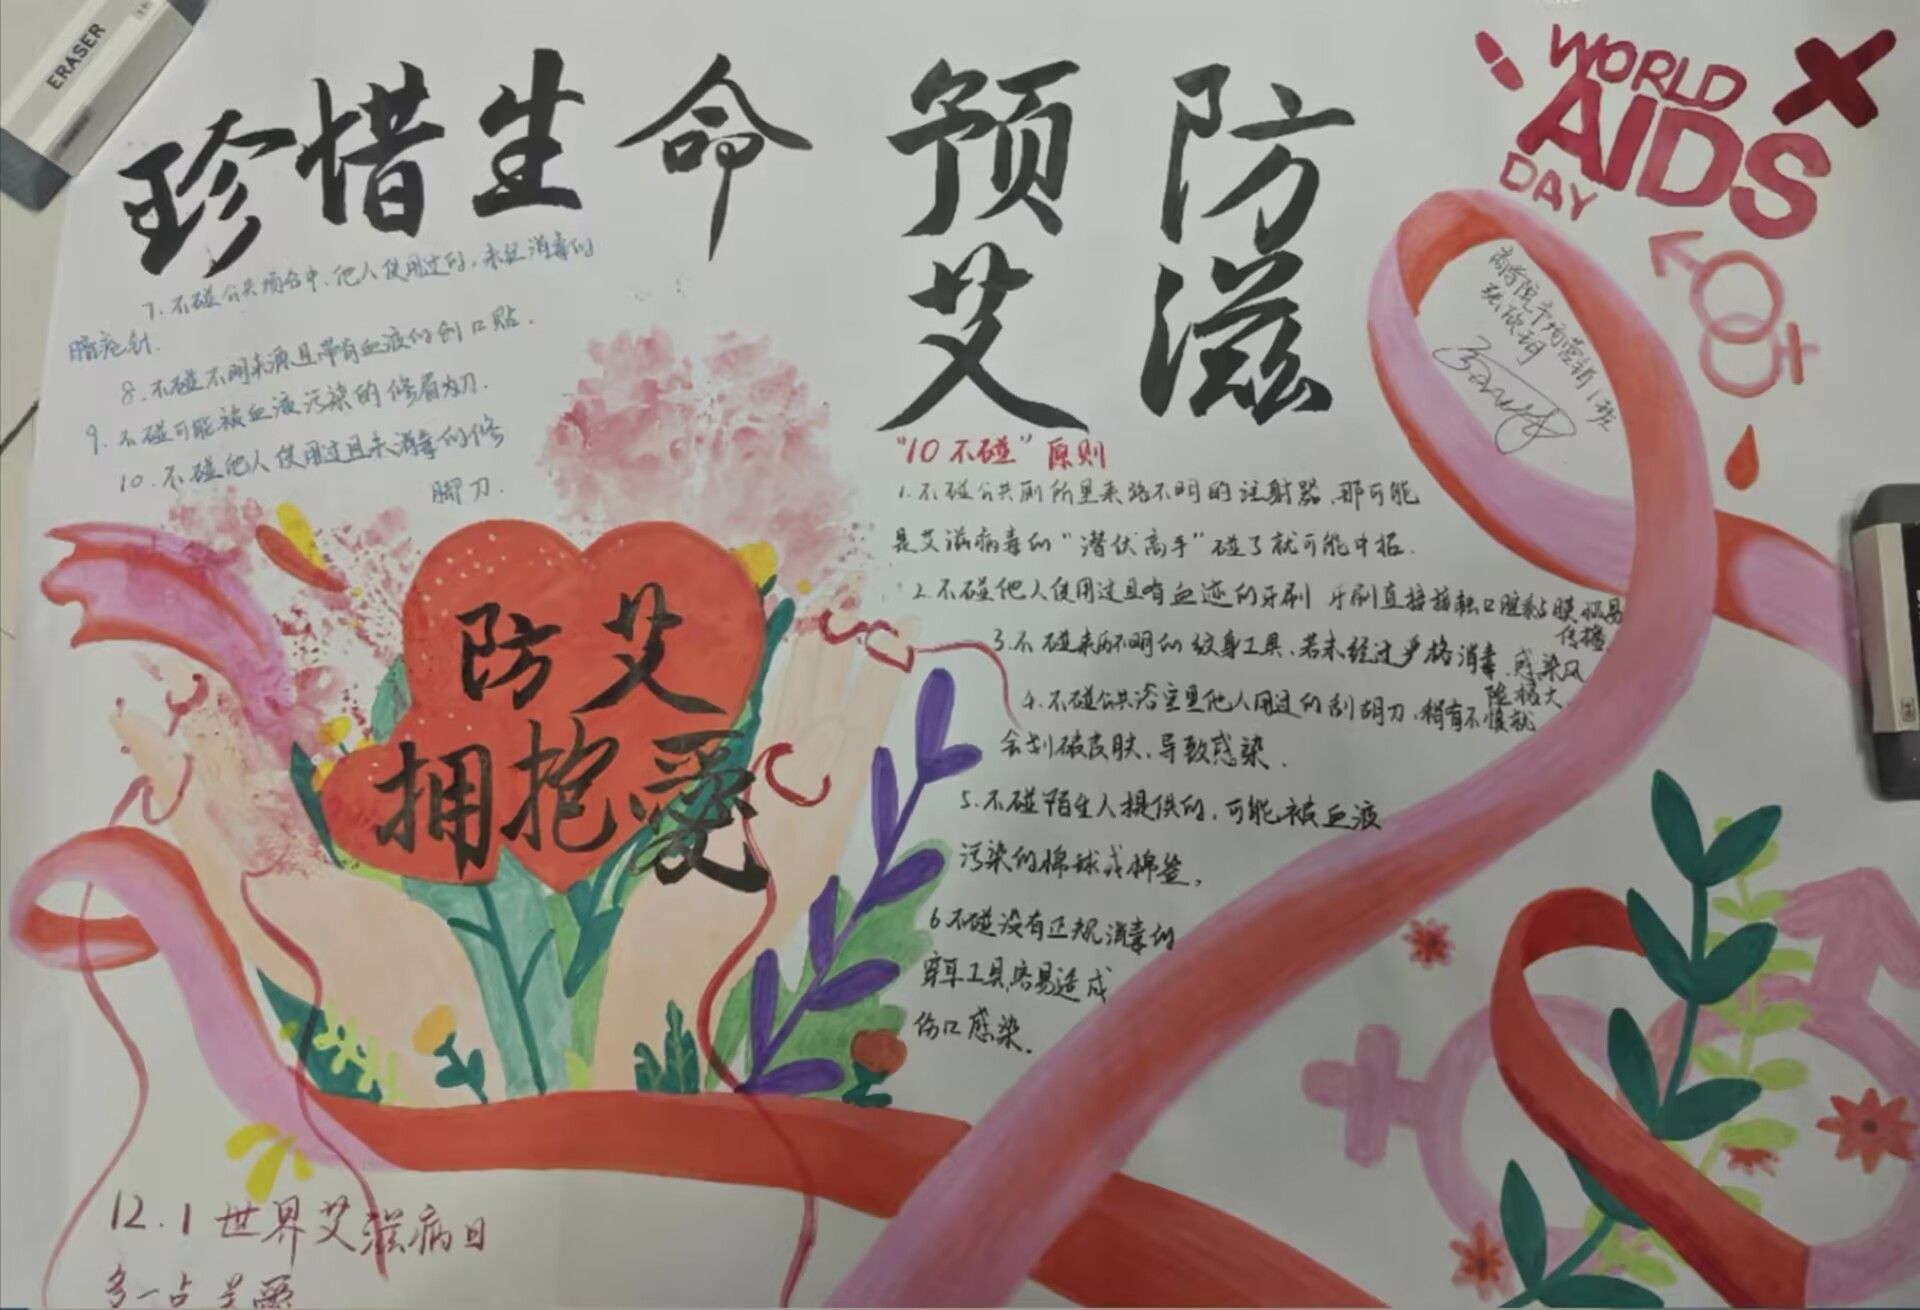 ERASER
珍惜生命 预防
艾滋
WORLD
AIDS
DAY
商学院市场营销1班
"10不碰"原则
1.不碰公共厕所里来路不明的注射器,那可能
是艾滋病毒的"潜伏高手"碰了就可能中招.
2.不碰他人使用过且有血迹的牙刷 牙刷直接接触口腔黏膜极易
传播
3.不碰来历不明的纹身工具、若未经过严格消毒,感染风
险极大
4.不碰公共浴室里他人用过的刮胡刀、稍有不慎就
会划破皮肤、导致感染.
5.不碰陌生人提供的,可能被血液
污染的棉球或棉签,
6不碰没有正规消毒的
穿耳工具,容易造成
伤口感染.
7.不碰公共场合中、他人使用过的,未经消毒的
暗疮针.
8.不碰不明来源且带有血液的创口贴.
9.不碰可能被血液污染的修眉刀.
10.不碰他人使用过且未消毒的修
脚刀.
防艾
拥抱爱
12.1世界艾滋病日
多一点关爱